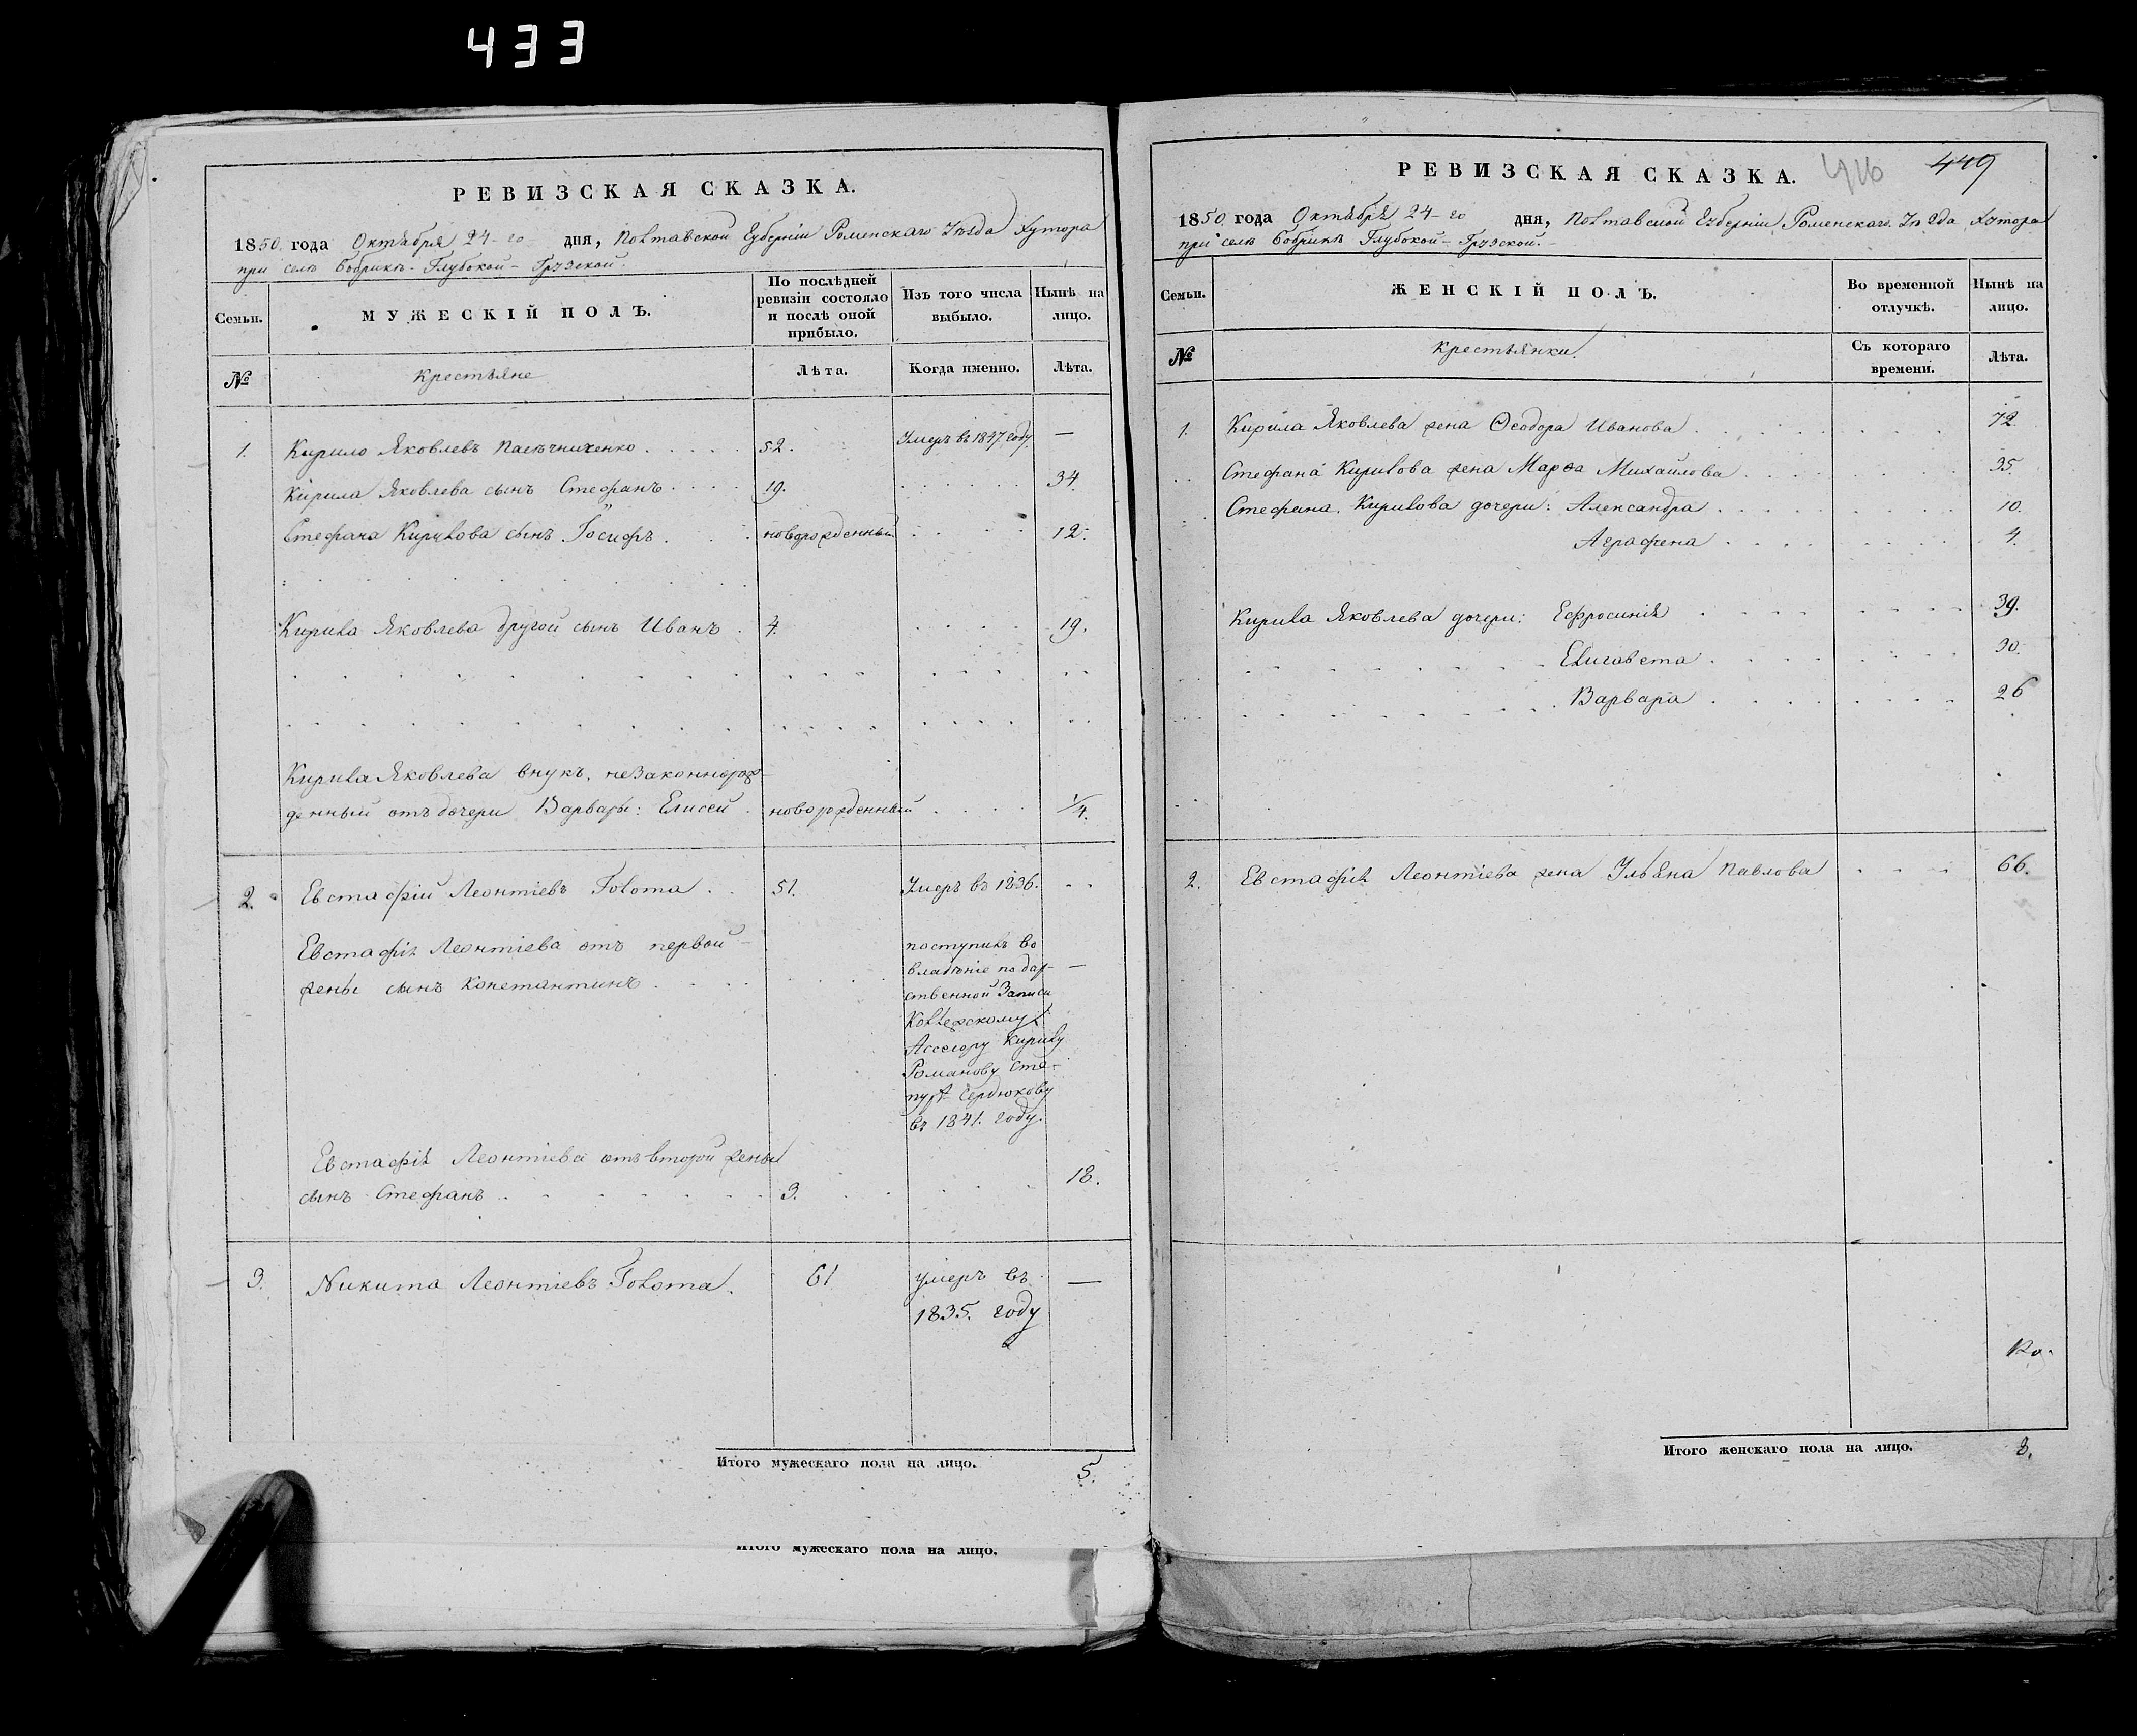 433
РЕВИЗСКАЯ СКАЗКА.
1850 года Октября 24-го дня, Полтавской Губерніи Роменскаго Уѣзда Хутора
при селѣ Бобрикѣ Глубокой-Грузской.
Семьи.
МУЖЕСКІЙ ПОЛЪ.
По послѣдней ревизіи состояло и послѣ оной прибыло.
Изъ того числа выбыло.
Нынѣ на лицо.
№
Крестьяне
Лѣта.
Когда именно.
Лѣта.
1. Кирило Яковлевъ Пасѣчниченко 52. Умеръ въ 1847 году —
Кирила Яковлева сынъ Стефанъ 19. 34
Стефана Кирилова сынъ Іосифъ новорожденный 12.
Кирила Яковлева другой сынъ Иванъ 4. 19.
Кирила Яковлева внукъ, незаконнорож-
денный отъ дочери Варвары: Елисей новорожденный 1/4.
2. Евстафій Леонтіевъ Голота 51. Умеръ въ 1836.
Евстафія Леонтіева отъ первой
жены сынъ Константинъ
поступилъ во
владѣніе по дар-
ственной Записи
Коллежскому
Ассесору Кирилу
Романову
Сердюкову
въ 1841. году.
—
Евстафія Леонтіева отъ второй жены
сынъ Стефанъ 3. 18.
3. Никита Леонтіевъ Голота. 61 умеръ въ —
1835. году
Итого мужескаго пола на лицо. 5.
Итого мужескаго пола на лицо.
РЕВИЗСКАЯ СКАЗКА. 416 449
1850 года Октября 24-го дня, Полтавской Губерніи Роменскаго Уѣзда Хутора
при селѣ Бобрикѣ Глубокой-Грузской.
Семьи.
ЖЕНСКІЙ ПОЛЪ.
Во временной отлучкѣ.
Нынѣ на лицо.
№
Крестьянки.
Съ котораго времени.
Лѣта.
1. Кирила Яковлева жена Ѳеодора Иванова 72
Стефана Кирилова жена Марѳа Михайлова 35.
Стефана Кирилова дочери: Александра 10.
Аграфена 4.
Кирила Яковлева дочери: Ефросинія 39.
Елизавета 30.
Варвара 26
2. Евстафія Леонтіева жена Ульяна Павлова 66.
Итого женскаго пола на лицо. 8.